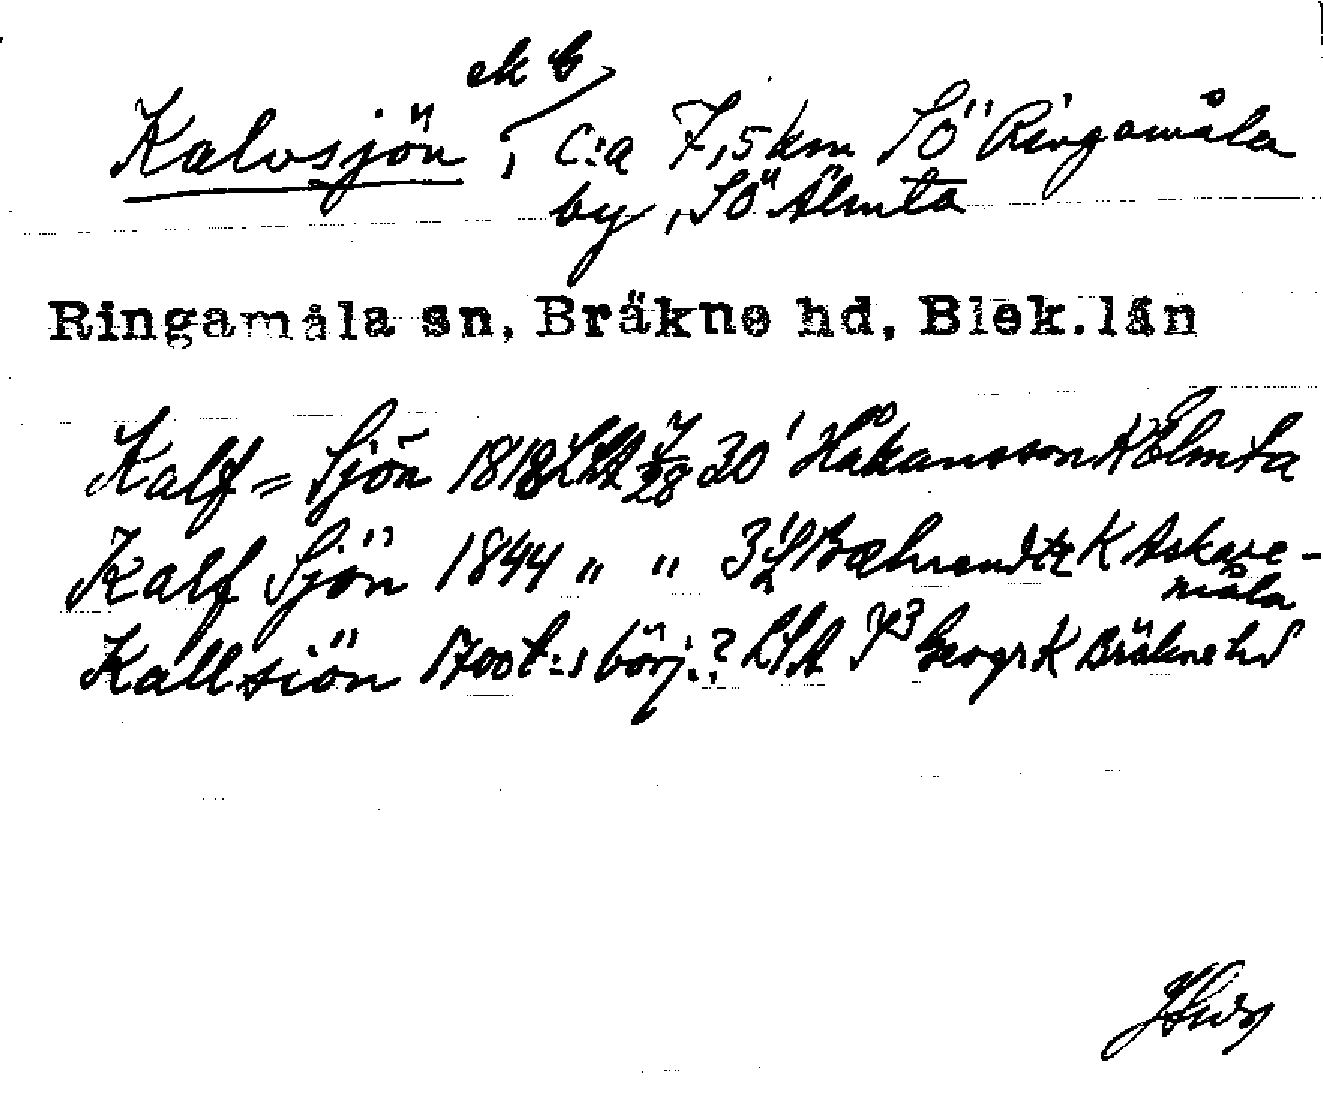 ek b
Kalvsjön, c:a 7,5 km SÖ Ringamåla
by, SÖ Älmta
Ringamåla sn, Bräkne hd, Blek. län
Kalf = Sjön 1818 LSA 30' Håkansson K Elmta
Kalf Sjön 1844 " " 31 Bæhrendtz K Askare-
måla
Kallsiön 1700t:s börj.? LSA Geogr K Bräkne hd